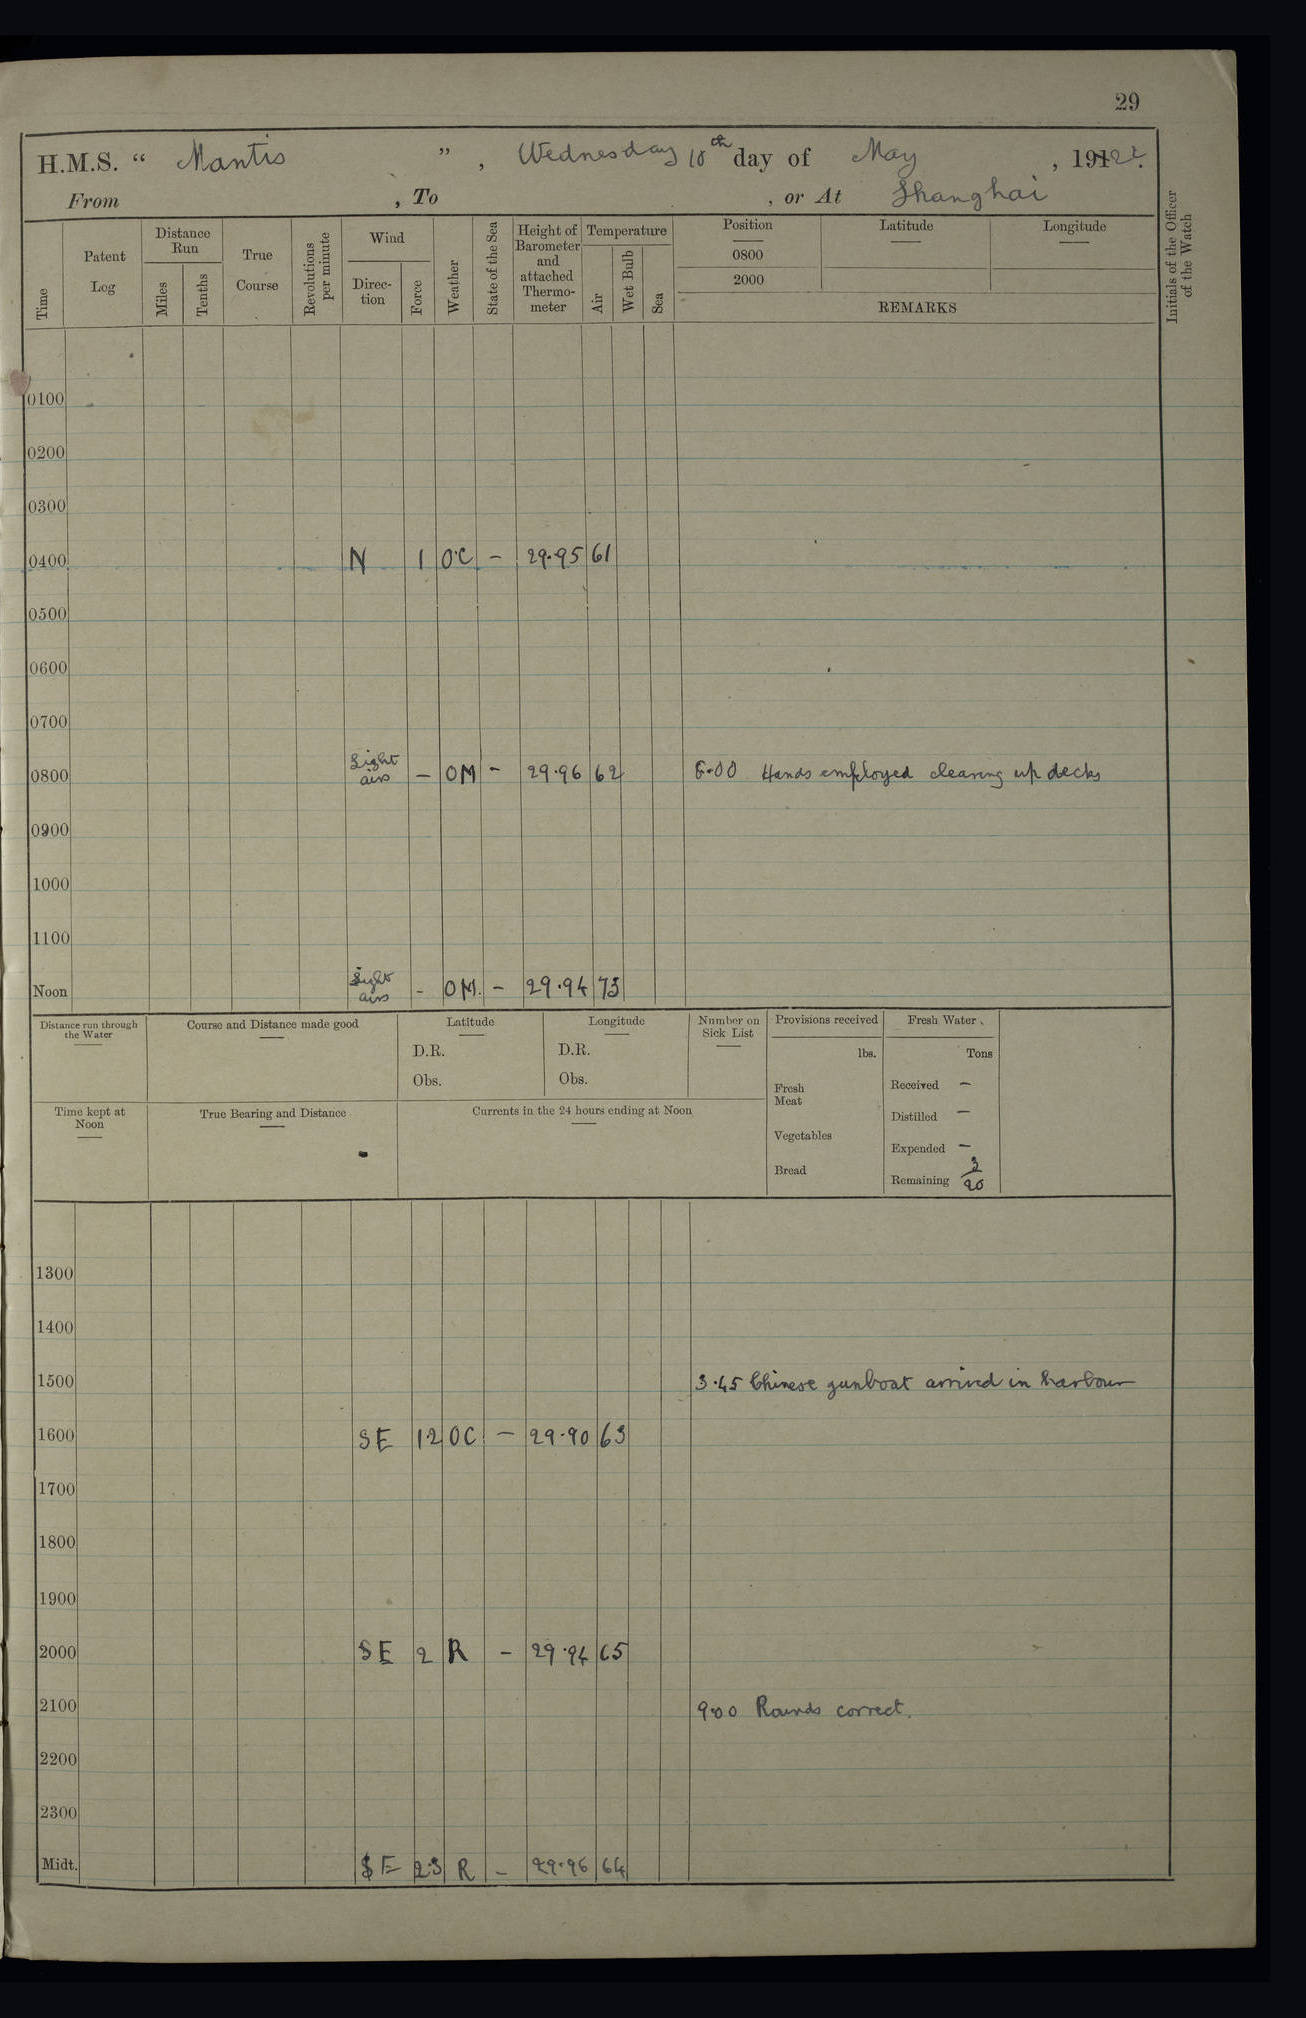 29
H.M.S. “ Mantis ” , Wednesday 10th day of May , 1922.
From , To , or At Shanghai
Time
Patent Log
Distance Run
Miles
Tenths
True Course
Revolutions per minute
Wind
Direction
Force
Weather
State of the Sea
Height of Barometer and attached Thermometer
Temperature
Air
Wet Bulb
Sea
Position
0800
2000
Latitude
Longitude
REMARKS
Initials of the Officer of the Watch
0100
0200
0300
0400 N 1 OC - 29.95 61
0500
0600
0700
0800 Light airs - OM - 29.96 62 6.00 Hands employed clearing up decks
0900
1000
1100
Noon Light airs - OM. - 29.94 73
Distance run through the Water
Course and Distance made good
Latitude
D.R.
Obs.
Longitude
D.R.
Obs.
Number on Sick List
Provisions received
lbs.
Fresh Meat
Vegetables
Bread
Fresh Water.
Tons
Received -
Distilled -
Expended -
Remaining 3/20
Time kept at Noon
True Bearing and Distance
Currents in the 24 hours ending at Noon
1300
1400
1500 3.45 Chinese gunboat arrived in harbour
1600 SE 12 OC - 29.90 63
1700
1800
1900
2000 SE 2 R - 29.94 65
2100 9.00 Rounds correct.
2200
2300
Midt. SE 2.3 R - 29.96 64